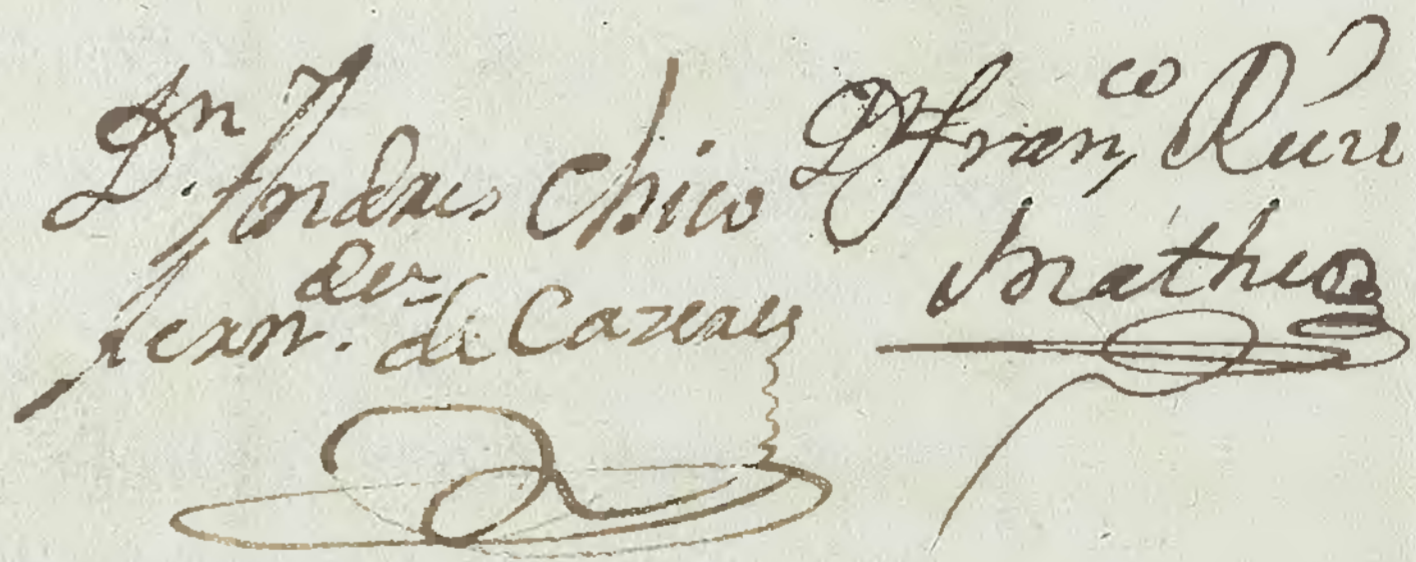 Dn. Andres Chico
ferndez. de Cazeres
Dn franco, Ruiz
Matheos